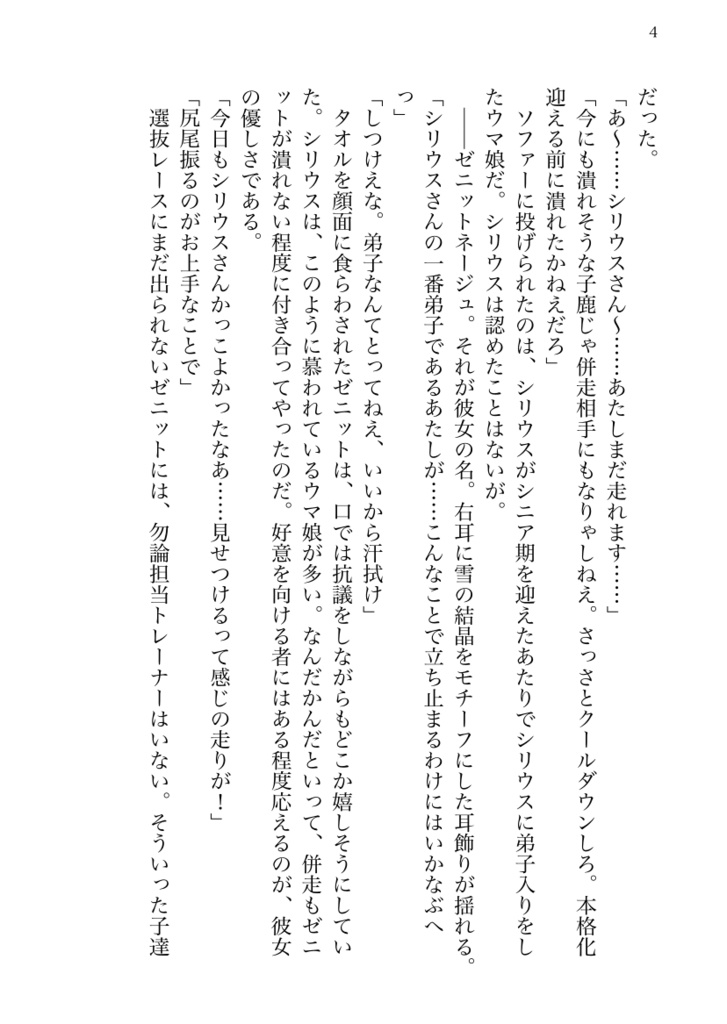 4
だった。
「あ～……シリウスさん～……あたしまだ走れます……」
「今にも潰れそうな子鹿じゃ併走相手にもなりゃしねえ。さっさとクールダウンしろ。本格化
迎える前に潰れたかねえだろ」
　ソファーに投げられたのは、シリウスがシニア期を迎えたあたりでシリウスに弟子入りをし
たウマ娘だ。シリウスは認めたことはないが。
　――ゼニットネージュ。それが彼女の名。右耳に雪の結晶をモチーフにした耳飾りが揺れる。
「シリウスさんの一番弟子であるあたしが……こんなことで立ち止まるわけにはいかなぶへ
っ」
「しつけえな。弟子なんてとってねえ、いいから汗拭け」
　タオルを顔面に食らわされたゼニットは、口では抗議をしながらもどこか嬉しそうにしてい
た。シリウスは、このように慕われているウマ娘が多い。なんだかんだといって、併走もゼニ
ットが潰れない程度に付き合ってやったのだ。好意を向ける者にはある程度応えるのが、彼女
の優しさである。
「今日もシリウスさんかっこよかったなあ……見せつけるって感じの走りが！」
「尻尾振るのがお上手なことで」
　選抜レースにまだ出られないゼニットには、勿論担当トレーナーはいない。そういった子達